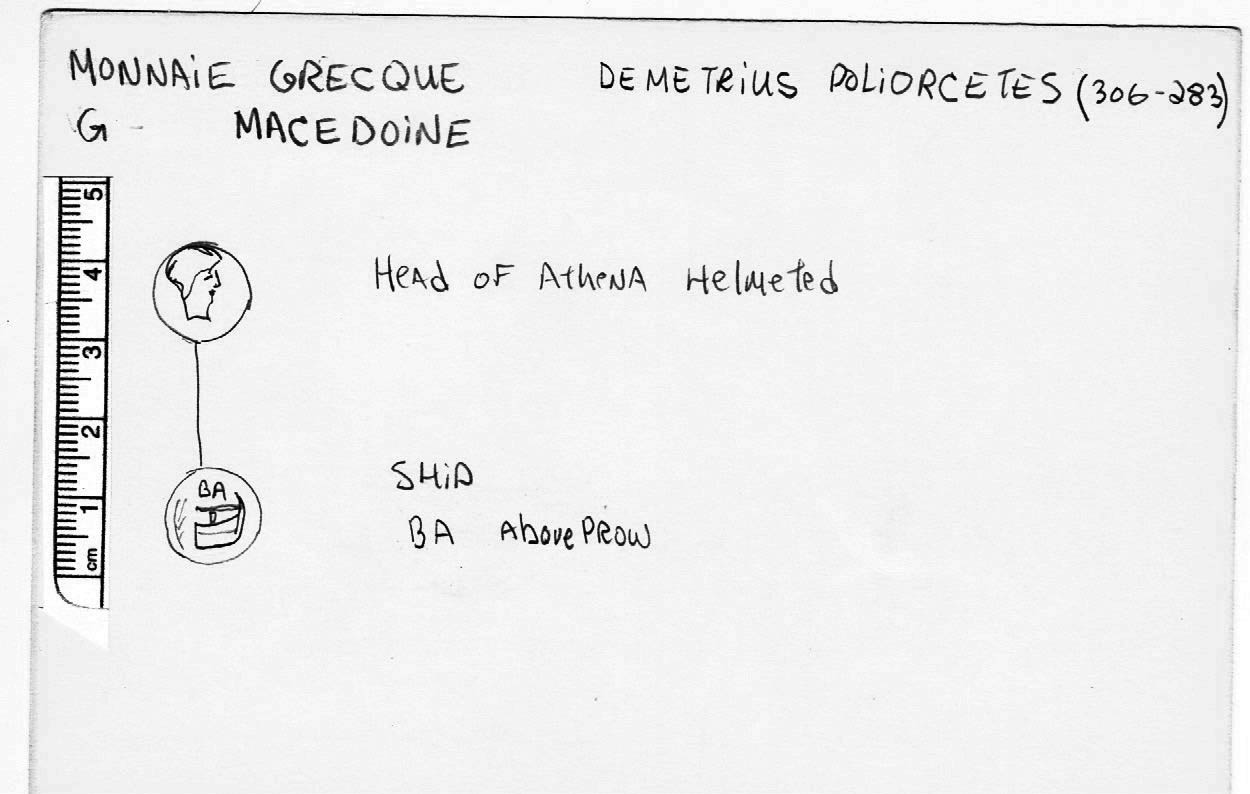 MONNAIE GRECQUE DEMETRIUS POLIORCETES (306-283)
G - MACEDOINE
5
4
3
2
1
cm
Head of Athena Helmeted
BA
SHIP
BA Above PROW